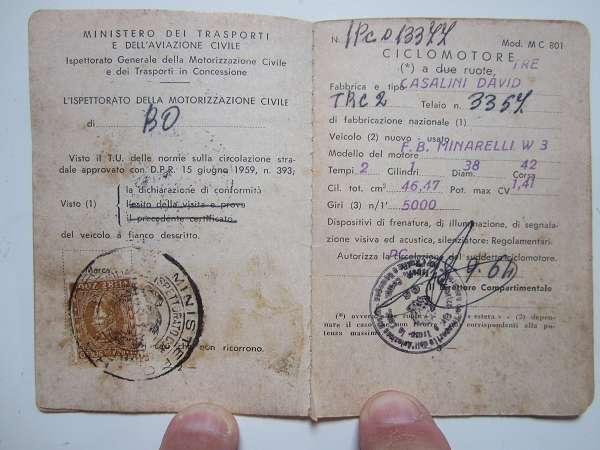 MINISTERO DEI TRASPORTI
E DELL'AVIAZIONE CIVILE
Ispettorato Generale della Motorizzazione Civile
e dei Trasporti in Concessione
L'ISPETTORATO DELLA MOTORIZZAZIONE CIVILE
di BO
Visto il T.U. delle norme sulla circolazione stra-
dale approvato con D.P.R. 15 giugno 1959, n. 393;
la dichiarazione di conformità
Visto (1) l'esito della visita e prova
il precedente certificato
del veicolo a fianco descritto.
Marca
MINISTERO
ISPETTORATO
che non ricorrono.
N. 1PC013377 Mod. MC 801
CICLOMOTORE
(*) a due ruote, TRE
Fabbrica e tipo CASALINI DAVID
TRC2 Telaio n. 3357
di fabbricazione nazionale (1)
Veicolo (2) nuovo - usato
Modello del motore F.B. MINARELLI W 3
Tempi 2 Cilindri 1 Diam. 38 Corsa 42
Cil. tot. cm³ 46,47 Pot. max CV 1,41
Giri (3) n/1' 5000
Dispositivi di frenatura, di illuminazione, di segnala-
zione visiva ed acustica, silenziatore: Regolamentari.
Autorizza la circolazione del suddetto ciclomotore.
PC 9.64
Il Direttore Compartimentale
(*) ovvero
(2) depen-
nare il caso che non ricorre corrispondenti alla po-
tenza massima